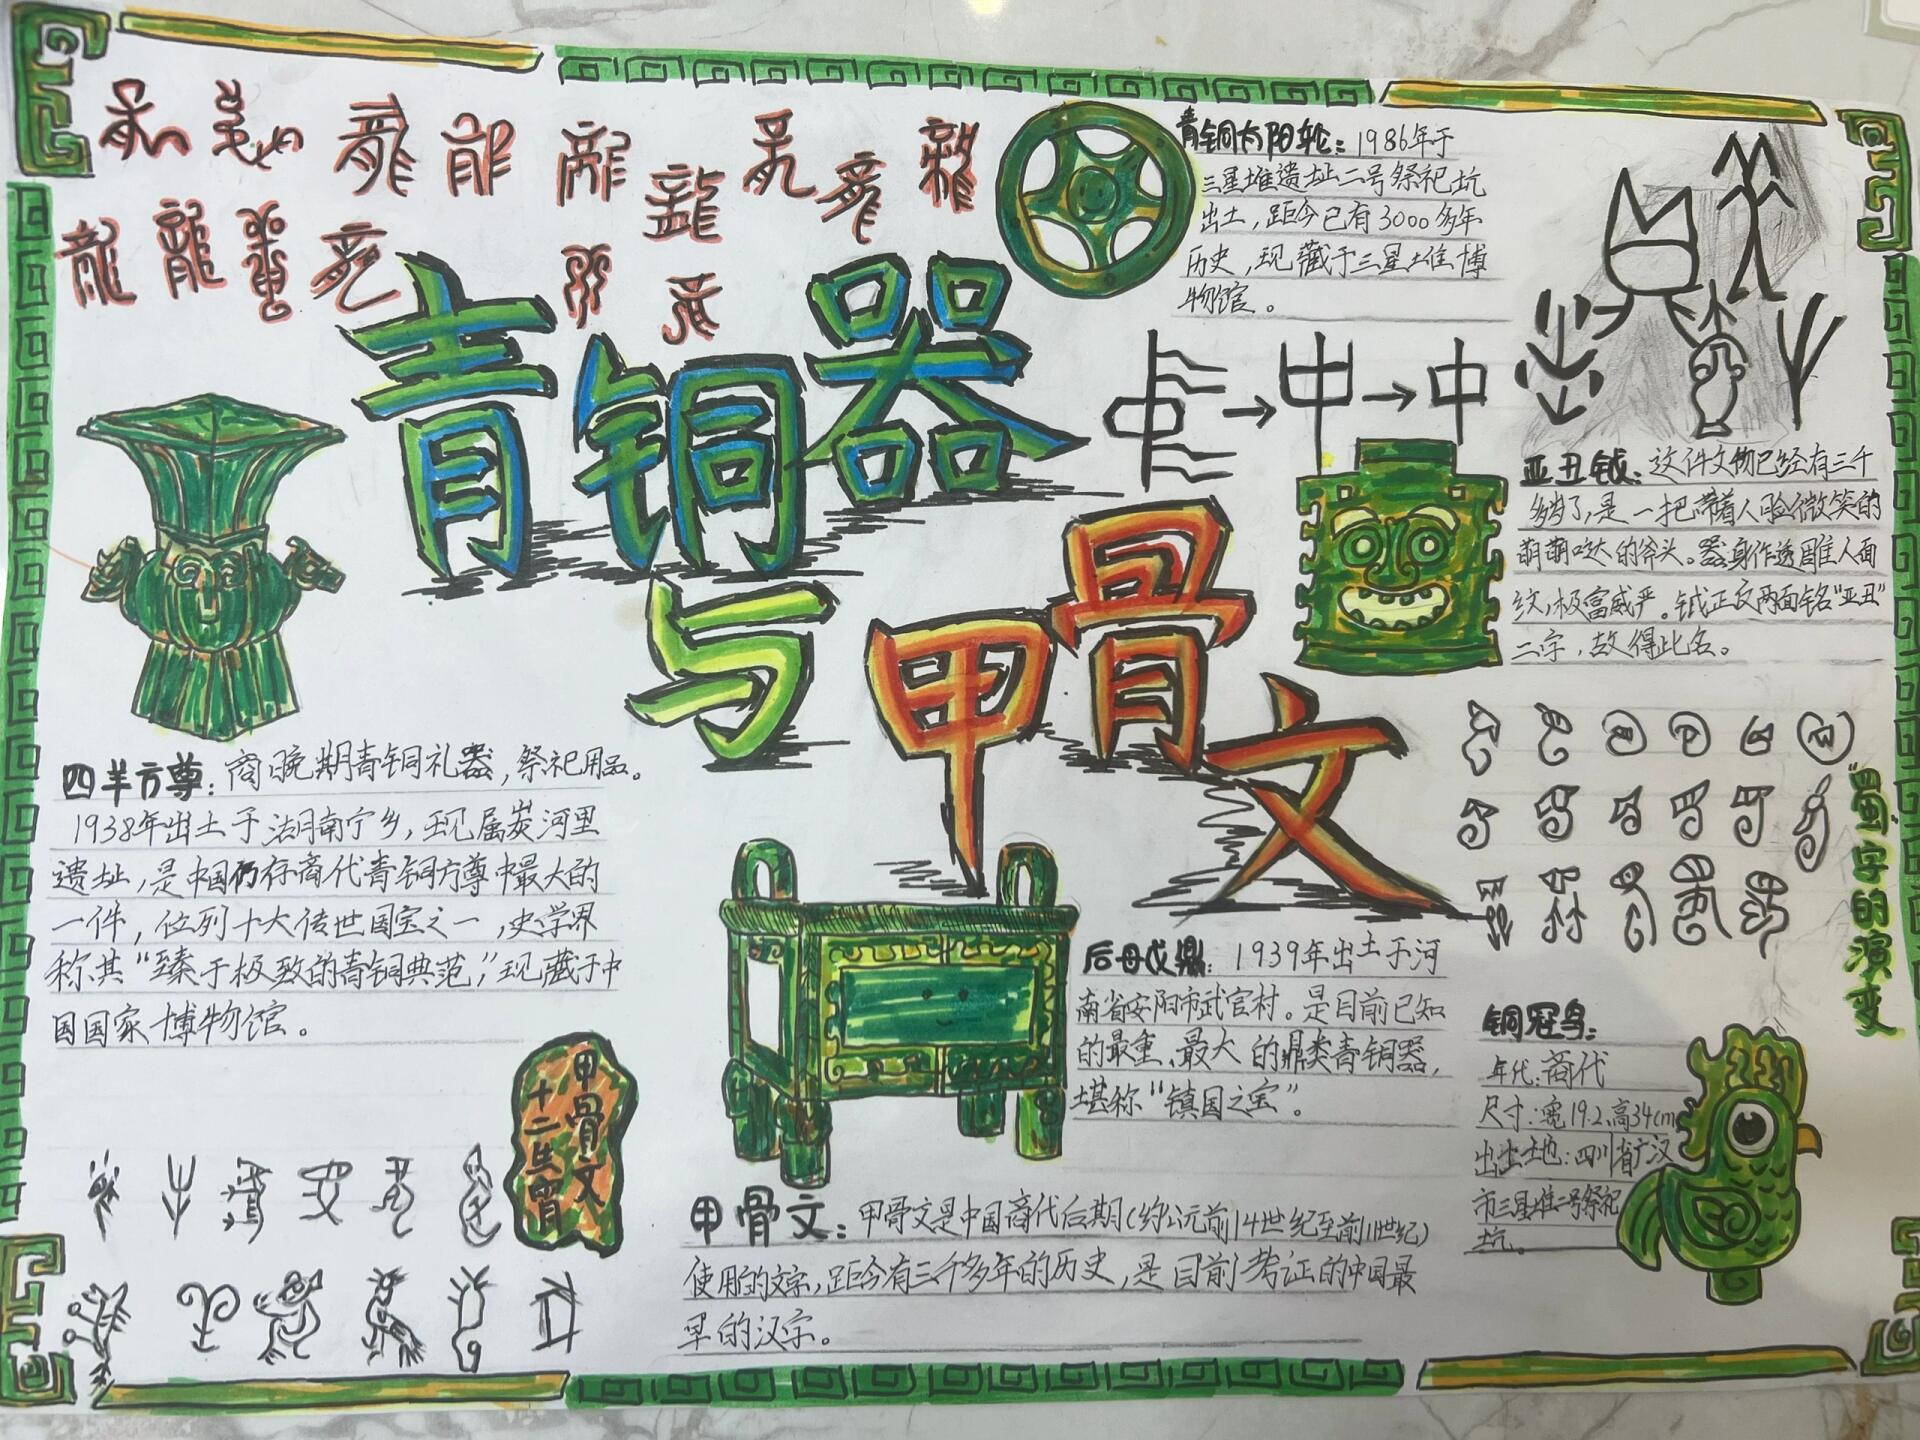 青铜器
与甲骨文
青铜太阳轮：1986年于
三星堆遗址二号祭祀坑
出土，距今已有3000多年
历史，现藏于三星堆博
物馆。
中→中
亚丑钺：这件文物已经有三千
多岁了，是一把带着人脸微笑的
萌萌哒的斧头。器身作透雕人面
纹，极富威严。钺正反两面铭“亚丑”
二字，故得此名。
四羊方尊：商晚期青铜礼器，祭祀用品。
1938年出土于湖南宁乡，现属炭河里
遗址，是中国仍存商代青铜方尊中最大的
一件，位列十大传世国宝之一，史学界
称其“臻于极致的青铜典范，”现藏于中
国国家博物馆。
后母戊鼎：1939年出土于河
南省安阳市武官村。是目前已知
的最重、最大的鼎类青铜器，
堪称“镇国之宝”。
“蜀”字的演变
铜冠鸟：
年代：商代
尺寸：宽19.2、高34cm
出土地：四川省广汉
市三星堆二号祭祀
坑。
甲骨文
十二生肖
甲骨文：甲骨文是中国商代后期（约公元前14世纪至前11世纪）
使用的文字，距今有三千多年的历史，是目前考证的中国最
早的汉字。